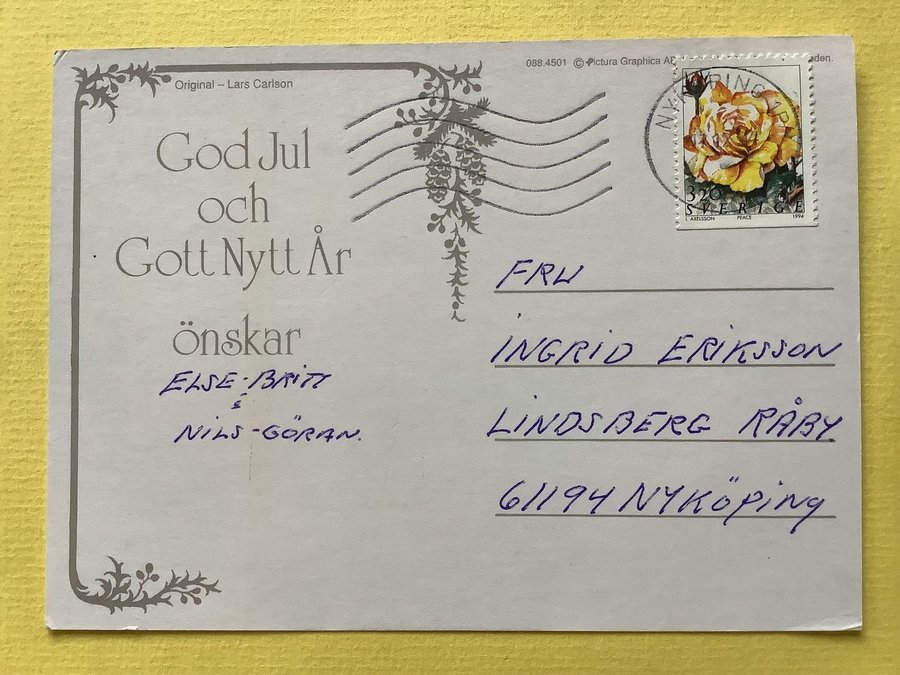 Original – Lars Carlson
God Jul
och
Gott Nytt År
önskar
ELSE-BRITT
&
NILS-GÖRAN.
088.4501 © Pictura Graphica
NYKÖPING
320
SVERIGE
L AXELSSON PEACE 1994
FRU
INGRID ERIKSSON
LINDSBERG RÅBY
61194 NYKÖPing